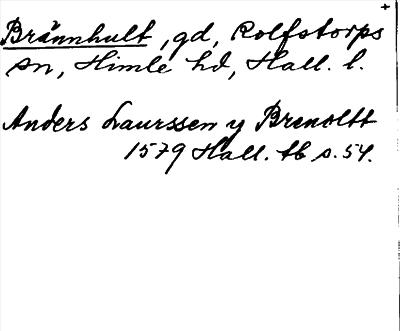 +
Brännhult, gd, Rolfstorps
sn, Himle hd, Hall. l.
Anders Laurssen y Brenoltt
1579 Hall. tb s. 54.